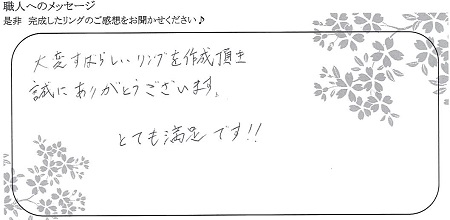 職人へのメッセージ
是非 完成したリングのご感想をお聞かせください♪
大変すばらしいリングを作成頂き
誠にありがとうございます。
とても満足です!!